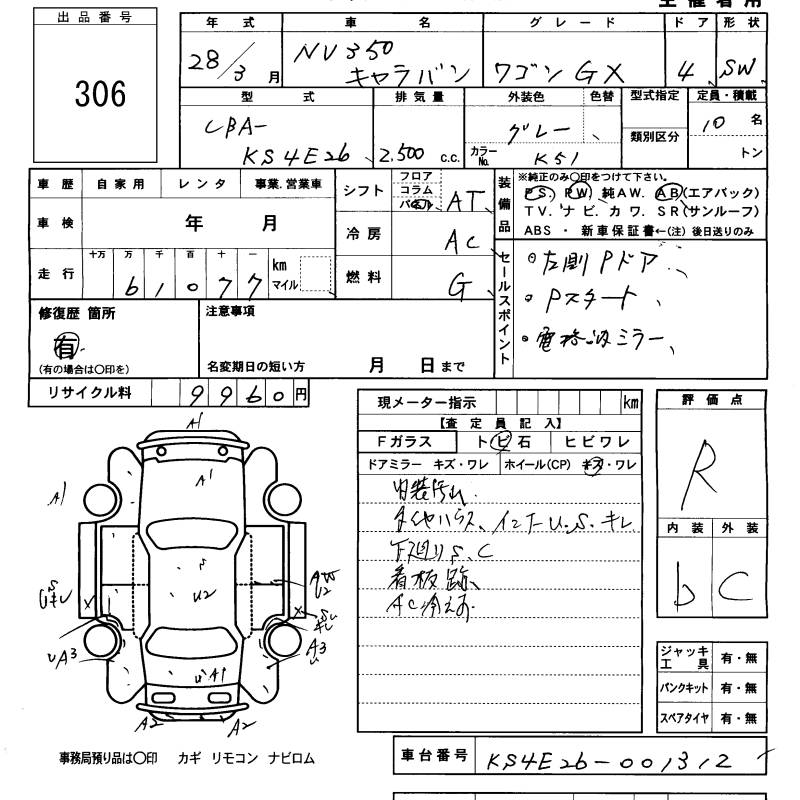 主催者用
出品番号
306
年式 車名 グレード ドア 形状
28/3月 NV350 キャラバン ワゴンGX 4 SW
型式 排気量 外装色 色替 型式指定 定員・積載
CBA- KS4E26 2.500 c.c. グレー カラーNo. K51 類別区分 10名 トン
車歴 自家用 レンタ 事業.営業車
車検 年 月
走行 十万 万 千 百 十 一 km マイル
61077
シフト フロア コラム パネル AT
冷房 AC
燃料 G
装備品
※純正のみ〇印をつけて下さい。
PS. PW. 純AW. AB(エアバック)
TV. ナビ. カワ. SR(サンルーフ)
ABS ・ 新車保証書←(注) 後日送りのみ
セールスポイント
左側Pドア
Pスタート
電格ミラー
修復歴 箇所
有
(有の場合は〇印を)
注意事項
名変期日の短い方 月 日まで
リサイクル料 9960円
現メーター指示 km
【査定員記入】
Fガラス トビ石 ヒビワレ
ドアミラー キズ・ワレ ホイール(CP) キズ・ワレ
内装汚れ
タイヤハウス、インナーU.S.キレ
下廻りS.C
看板跡
AC冷えず
評価点
R
内装 外装
b C
ジャッキ工具 有・無
パンクキット 有・無
スペアタイヤ 有・無
A1
A1
A1
S
U2
UA3
A3
UA1
A2 A2
事務局預り品は〇印 カギ リモコン ナビロム
車台番号 KS4E26-001312